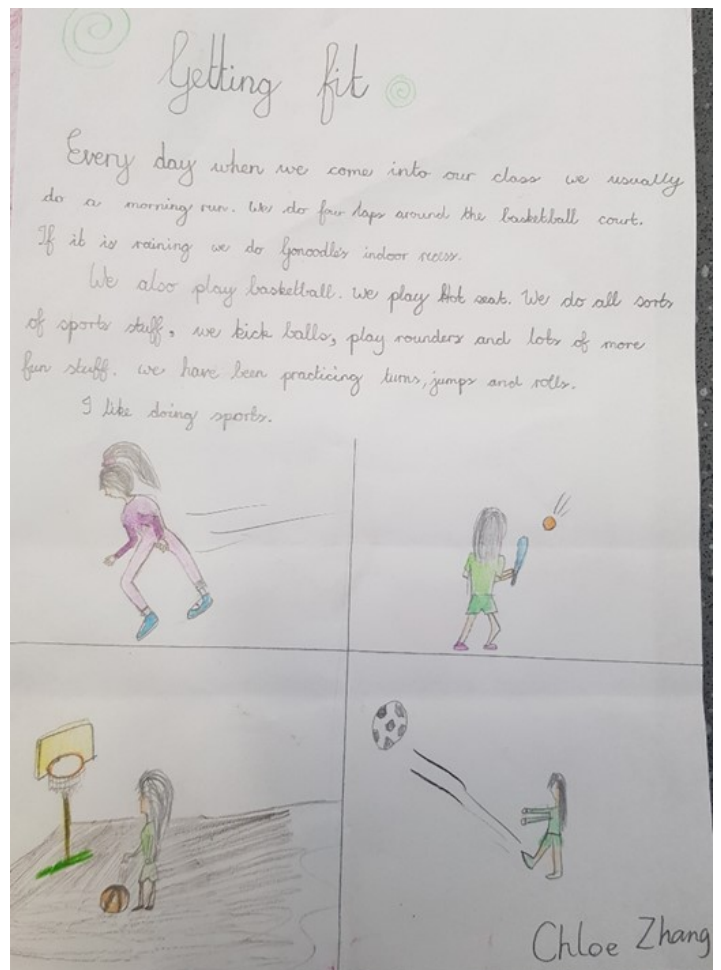 Getting fit
Every day when we come into our class we usually
do a morning run. We do four laps around the basketball court.
If it is raining we do Gonoodle's indoor recess.
We also play basketball. We play Hot seat. We do all sorts
of sports stuff, we kick balls, play rounders and lots of more
fun stuff. we have been practicing turns, jumps and rolls.
I like doing sports.
Chloe Zhang